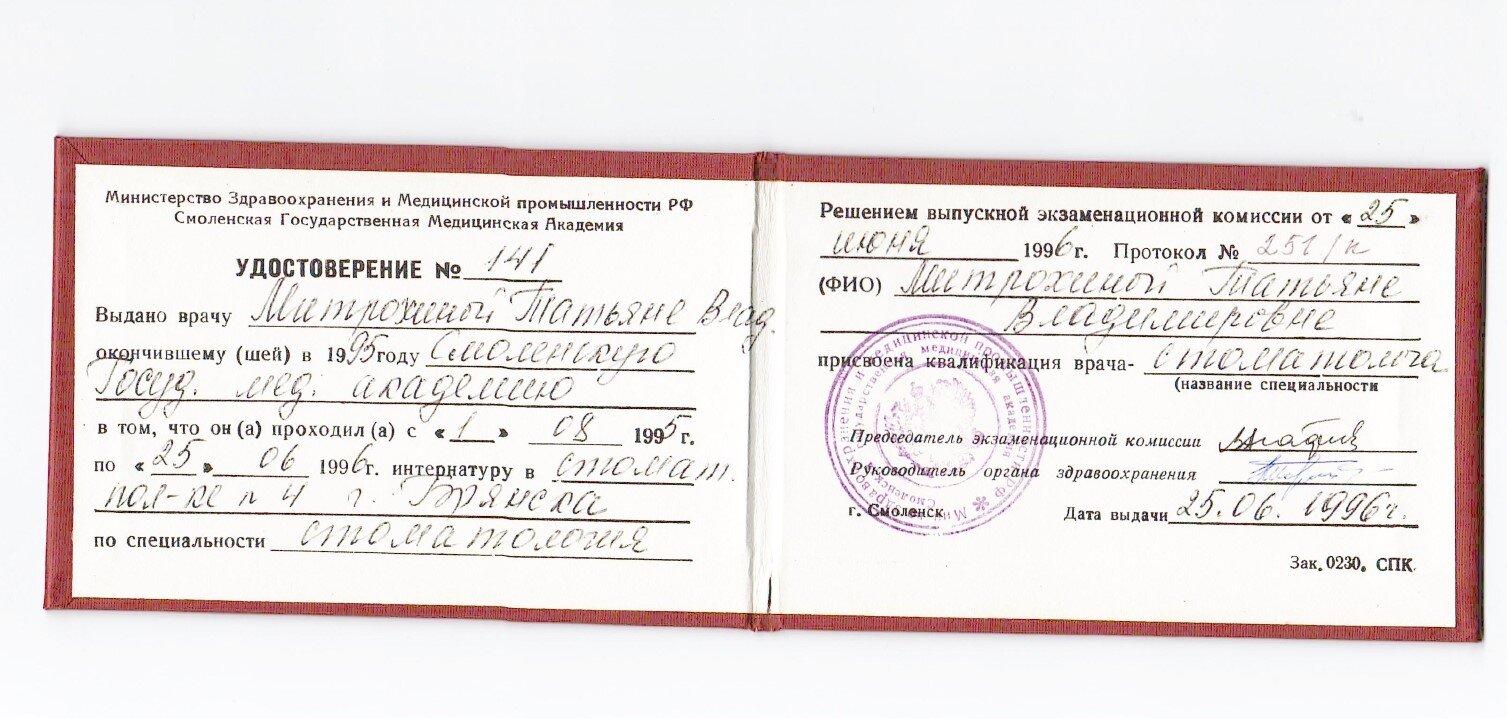 Министерство Здравоохранения и Медицинской промышленности РФ
Смоленская Государственная Медицинская Академия
УДОСТОВЕРЕНИЕ № 141
Выдано врачу Митрохиной Татьяне Влад.
окончившему (шей) в 1995 году Смоленскую
Госуд. мед. академию
в том, что он (а) проходил (а) с «1» 08 1995 г.
по «25» 06 1996 г. интернатуру в стомат.
пол-ке п 4 г. Брянска
по специальности стоматология
Решением выпускной экзаменационной комиссии от «25»
июня 1996 г. Протокол № 251/к
(ФИО) Митрохиной Татьяне
Владимировне
присвоена квалификация врача- стоматолога
(название специальности
Председатель экзаменационной комиссии
Руководитель органа здравоохранения
г. Смоленск Дата выдачи 25.06.1996г.
Зак. 0230. СПК.